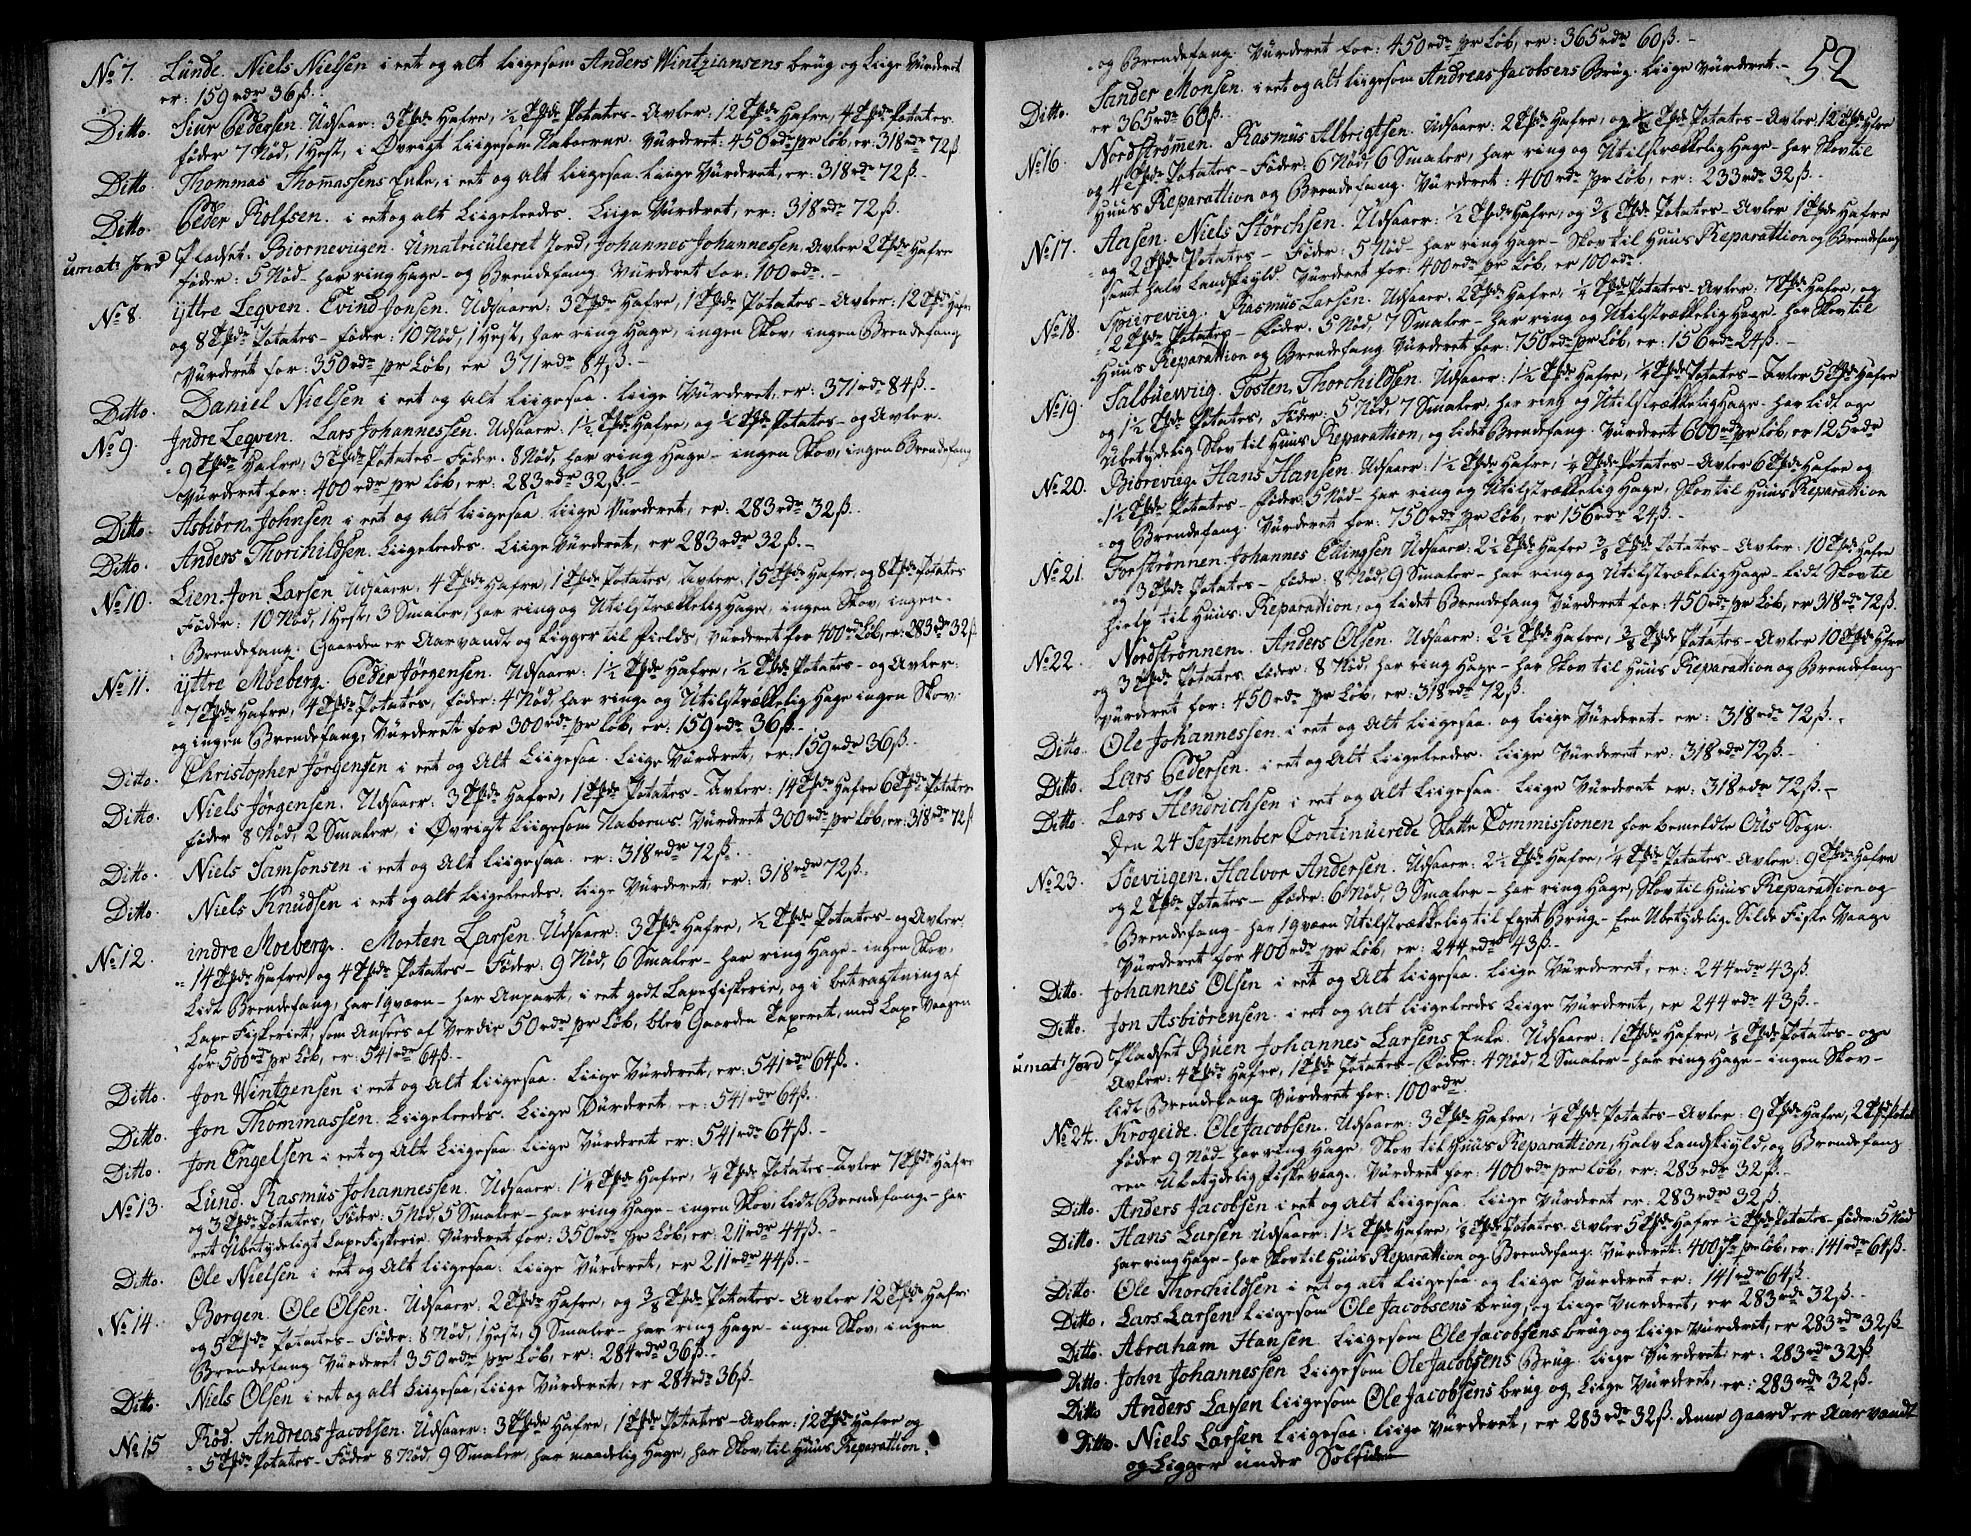 No 7. Lünde. Niels Nielsen i eet og alt liigesom Anders Wintziansens brug og Liige Vürderet
er: 159 rdr 36 ß.
Ditto. Siur Pedersen. Udsaar: 3 Tpde Hafre, ½ Tpde Potates - Avler: 12 Tpde Hafre, 4 Tpde Potates.
føder 7 Nød, 1 Hest, i Øvrigt liigesom Naboerne. Vürderet: 450 rdr pr Løb, er: 318 rdr 72 ß
Ditto Thommas Thomassens Enke, i eet og Alt Liigesaa. Liige Vürderet, er: 318 rdr 72 ß. -
Ditto. Peder Rolfsen. i eet og alt Liigeleedes. Liige Vürderet, er: 318 rdr 72 ß.
umat: Jord Pladset. Biornevigen. Umatriculeret Jord, Johannes Johannessen, Avler 2 Tpde Hafre
føder: 5 Nød - har ring Hage - og Brendefang. Vürderet for: 100 rdr. -
No 8. ijttre Legven. Evind Jonsen. Udsaar: 3 Tpde Hafre, 1 Tpde Potates - Avler: 12 Tpde Hafre
og 8 Tpde Potates - føder: 10 Nød, 1 Hest, har ring Hage, ingen Skov, ingen Brendefang
Vürderet for: 350 rdr pr Løb, er 371 rdr 84 ß. -
Ditto. Daniel Nielsen i eet og alt liigesaa. liige Vürderet, er: 371 rdr 84 ß. -
No 9. Indre Legven. Lars Johannessen. Udsaar: 1½ Tpde Hafre, og ½ Tpde Potates - og Avler.
9 Tpde Hafre, 3 Tpde Potates - Føder. 8 Nød, har ring Hage - ingen Skov, ingen Brendefang
Vürderet for: 400 rdr pr Løb, er: 283 rdr 32 ß -
Ditto. Asbiørn Johnsen i eet og alt liigesaa liige Vürderet, er: 283 rdr 32 ß. -
Ditto. Anders Thorchildsen. Liigeleedes. Liige Vürderet, er 283 rdr 32 ß. -
No 10. Lien. Jon Larsen Udsaar, 4 Tpde Hafre, 1 Tpde Potates, Avler, 15 Tpde Hafre, og 8 Tpde Potates
Føder: 10 Nød, 1 Hest, 3 Smaler, har ring og Utilstrækkelig Hage, ingen Skov, ingen
Brendefang. Gaarden er Aarvandt og Ligger til fields, Vürderet for 400 rdr Løb, er: 283 rdr 32 ß
No 11. ijttre Moeberg. Peder Jørgensen. Udsaar: 1½ Tpde Hafre, ½ Tpde Potates - og Avler:
7 Tpde Hafre, 4 Tpde Potates, føder: 4 Nød, har ringe og Utilstrækkelig Hage ingen Skov.
og ingen Brendefang, Vürderet for 300 rdr pr Løb, er: 159 rdr 36 ß. -
Ditto. Christopher Jørgensen i eet og Alt Liigesaa. Liige Vürderet, er: 159 rdr 36 ß. -
Ditto. Niels Jørgensen. Udsaar: 3 Tpde Hafre, 1 Tpde Potates - Avler: 14 Tpde Hafre 6 Tpde Potates
føder 8 Nød, 2 Smaler, i Øvrigt Liigesom Naboens. Vürderet 300 rdr pr Løb, er: 318 rdr 72 ß
Ditto. Niels Samsonsen i eet og Alt Liigesaa. er: 318 rdr 72 ß.
Ditto. Niels Knüdsen i eet og alt Liigeleedes. Liige Vürderet, er: 318 rdr 72 ß.
No 12. indre Moeberg. Morten Larsen. Udsaar: 3 Tpde Hafre, ½ Tpde Potates - og Avler:
14 Tpde Hafre og 4 Tpde Potates - Føder: 9 Nød, 6 Smaler - har ring Hage - ingen Skov.
Lidt Brendefang, har 1 qværn - har Anpart, i eet godt Laxefiskerie, og i betragtning af
Laxe Fiskeriet, som Ansees af Verdie 50 rdr pr Løb, blev Gaarden Taxeret, med Laxe Vaagen
for 500 rdr pr Løb, er: 541 rdr 64 ß. -
Ditto. Jon Wintzensen i eet og Alt Liigesaa. Liige Vürderet, er: 541 rdr 64 ß. -
Ditto. Jon Thommassen. Liigeleedes. Liige Vürderet, er: 541 rdr 64 ß. -
Ditto. Jon Engelsen i eet og Alt Liigesaa. Liige Vürderet er: 541 rdr 64 ß. -
No 13. Lünd. Rasmüs Johannessen. Udsaar: 1¼ Tpde Hafre, ¼ Tpde Potates - Avler 7 Tpde Hafre
og 3 Tpde Potates, Føder: 5 Nød, 5 Smaler - har ring Hage - ingen Skov, lidt Brendefang - har
eet Ubetydeligt Laxefiskerie. Vürderet for: 350 rdr pr Løb, er: 211 rdr 44 ß. -
Ditto. Ole Nielsen i eet og Alt liigesaa. Liige Vürderet, er 211 rdr 44 ß. -
No 14. Borgen. Ole Olsen. Udsaar: 2 Tpde Hafre, og 3/8 Tpde Potates - Avler 12 Tpde Hafre
og 5 Tpde Potates - Føder: 8 Nød, 1 Hest, 9 Smaler - har ring Hage - ingen Skov, ingen
Brendefang Vürderet 350 rdr pr Løb, er: 284 rdr 36 ß. -
Ditto. Niels Olsen i eet og alt Liigesaa, Liige Vürderet, er 284 rdr 36 ß. -
No 15 Rød. Andreas Jacobsen. Udsaar: 3 Tpde Hafre, 1 Tpde Potates - Avler: 12 Tpde Hafre og
5 Tpde Potates - Føder 8 Nød, 9 Smaler, har maadelig Hage, har Skov til Huus Reparation.
52
og Brendefang. Vürderet for: 450 rdr pr Løb, er: 365 rdr 60 ß. -
Ditto. Sander Monsen. i eet og alt Liigesom Andreas Jacobsens Brüg. Liige Vürderet. -
er 365 rdr 60 ß. -
No 16. Nordstrømen. Rasmüs Albrigtsen. Udsaar: 2 Tpde Hafre, og Tpde Potates - Avler, 12 Tpde Hafre
og 4 Tpde Potates - Føder: 6 Nød, 6 Smaler, har ring og Utilstrækkelig Hage - har Skov til
Huus Reparattion og Brendefang. Vürderet: 400 rdr pr Løb, er: 233 rdr 32 ß. -
No 17. Aasen. Niels Størchsen. Udsaar: ½ Tpde Hafre, og 3/8 Tpde Potates - Avler 1 Tpde Hafre
og 2 Tpde Potates - Føder: 5 Nød - har ring Hage - Skov til Huus Reparattion og Brendefang
samt halv Landskiyld. Vürderet for: 400 rdr pr Løb, er 100 rdr.
No 18. Spürevüg. Rasmüs Larsen. Udsaar. 2 Tpde Hafre, ¼ Tpde Potates - Avler: 7 Tpde Hafre, og
2 Tpde Potates - Føder. 5 Nød, 7 Smaler - har ring og Utilstrækkelig Hage. har Skov til
Huus Reparattion og Brendefang Vürderet for: 750 rdr pr Løb, er: 156 rdr 24 ß. -
No 19. Salbüevüg. Tosten Thorchildsen. Udsaar: 1½ Tpde Hafre, ¼ Tpde Potates - Avler 5 Tpde Hafre
og 1½ Tpde Potates, Føder: 5 Nød, 7 Smaler, har ring og Utilstrækkelig Hage - har lidt og
Ubetydelig Skov til Huus Reparattion, og lidet Brendefang. Vürderet 600 rdr pr Løb, er 125 rdr
No 20. Bibrevüg. Hans Hansen. Udsaar: 1½ Tpde Hafre, ¼ Tpde Potates - Avler 6 Tpde Hafre og
1½ Tpde Potates - føder: 5 Nød - har ring og Utilstrækkelig Hage. Skov til Huus Reparattion
og Brendefang. Vürderet for: 750 rdr pr Løb, er 156 rdr 24 ß. -
No 21. Forstrønnen. Johannes Ellingsen Udsaar: 2½ Tpde Hafre 3/8 Tpde Potates - Avler: 10 Tpde Hafre
og 3 Tpde Potates - føder: 8 Nød, 9 Smaler - har ring og Utilstrækelig Hage - lidt Skov til
hielp til Huus. Reparattion, og lidet Brendefang Vürderet for: 450 rdr pr Løb, er 318 rdr 72 ß.
No 22. Nordstrønnen. Anders Olsen. Udsaar: 2½ Tpde Hafre, 3/8 Tpde Potates - Avler 10 Tpde Hafre
og 3 Tpde Potates. føder: 8 Nød, har ring Hage - har Skov til Huus Reparattion og Brendefang
Vürderet for: 450 rdr pr Løb, er: 318 rdr 72 ß.
Ditto. Ole Johannessen. i eet og Alt Liigesaa. og liige Vürderet. er: 318 rdr 72 ß. -
Ditto. Lars Pedersen. i eet og Alt Liigeleedes. Liige Vürderet er: 318 rdr 72 ß. -
Ditto. Lars Hendrichsen i eet og Alt Liigesaa. Liige Vürderet er: 318 rdr 72 ß. -
Den 24 September Continuerede Skatte Commissionen for bemeldte Ous Sogn.
No 23. Søevügen. Halvor Andersen. Udsaar: 2½ Tpde Hafre, ¼ Tpde Potates - Avler: 9 Tpde Hafre
og 2 Tpde Potates - føder: 6 Nød, 3 Smaler - har ring Hage, Skov til Huus Reparattion og
Brendefang - har 1 qværn Utilstrækkelig til Eget Brüg - Een Ubetydelig Silde Fiske Vaage
Vürderet for 400 rdr pr Løb, er: 244 rdr 43 ß. -
Ditto. Johannes Olsen i eet og Alt Liigesaa. Liige Vürderet, er: 244 rdr 43 ß.
Ditto. Jon Asbiørensen. i eet og alt Liigeleedes Liige Vürderet, er 244 rdr 43 ß. -
umat: Jord Pladset Büen Johannes Larsens Enke. Udsaar: 1 Tpde Hafre, 1/8 Tpde Potates - og
Avler: 4 Tpde Hafre, 1 Tpde Potates - Føder: 4 Nød, 2 Smaler - har ring Hage - ingen Skov -
lidt Brendefang Vürderet for: 100 rdr.
No 24. Krogeide. Ole Jacobsen. Udsaar: 3 Tpde Hafre, ¼ Tpde Potates - Avler: 9 Tpde Hafre, 2 Tpde Potates
føder 9 Nød - har ring Hage, Skov til Huus Reparattion, Halv Landskiyld, og Brendefang
een Ubetydelig fiskevaag. Vürderet for: 400 rdr pr Løb, er: 283 rdr 32 ß. -
Ditto. Anders Jacobsen i eet og Alt Liigesaa. Liige Vürderet er: 283 rdr 32 ß.
Ditto. Hans Larsen Udsaar: 1½ Tpde Hafre, 1/8 Tpde Potates - Avler 5 Tpde Hafre ½ Tpde Potates - føder: 5 Nød
har ring Hage - har Skov til Huus Reparattion og Brendefang. Vürderet: 400 rdr pr Løb, er: 141 rdr 64 ß.
Ditto. Ole Thorchildsen i eet og alt Liigesaa. og liige Vürderet er: 141 rdr 64 ß.
Ditto. Lars Larsen liigesom Ole Jacobsens brug, og liige Vurderet, er 283 rdr 32 ß. -
Ditto. Abraham Hansen. Liigesom Ole Jacobsens brug og liige Vürderet, er 283 rdr 32 ß.
Ditto. John Johannessen Liigesom Ole Jacobsens Brüg. liige Vürderet er: 283 rdr 32 ß.
Ditto Anders Larsen Liigesom Ole Jacobsens brug og Liige Vürderet, er: 283 rdr 32 ß. -
Ditto. Niels Larsen Liigesaa. liige Vürderet, er 283 rdr 32 ß. denne Gaard er Aarvandt
og Ligger under Solsiden